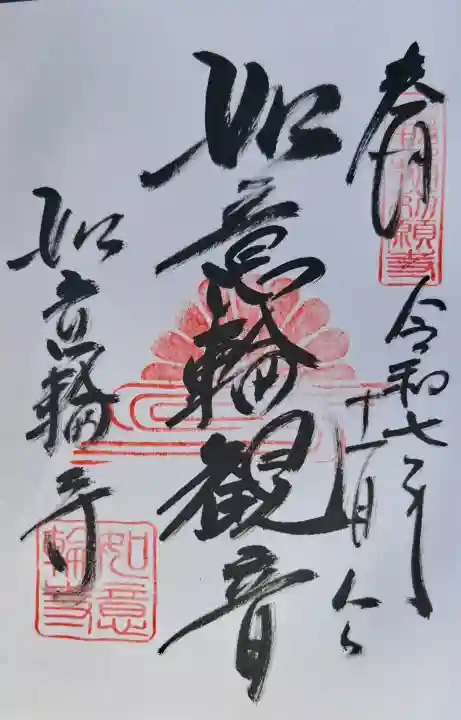 奉拝
令和七年
十一月八日
如意輪観音
如意輪寺
勅願寺
如意輪寺